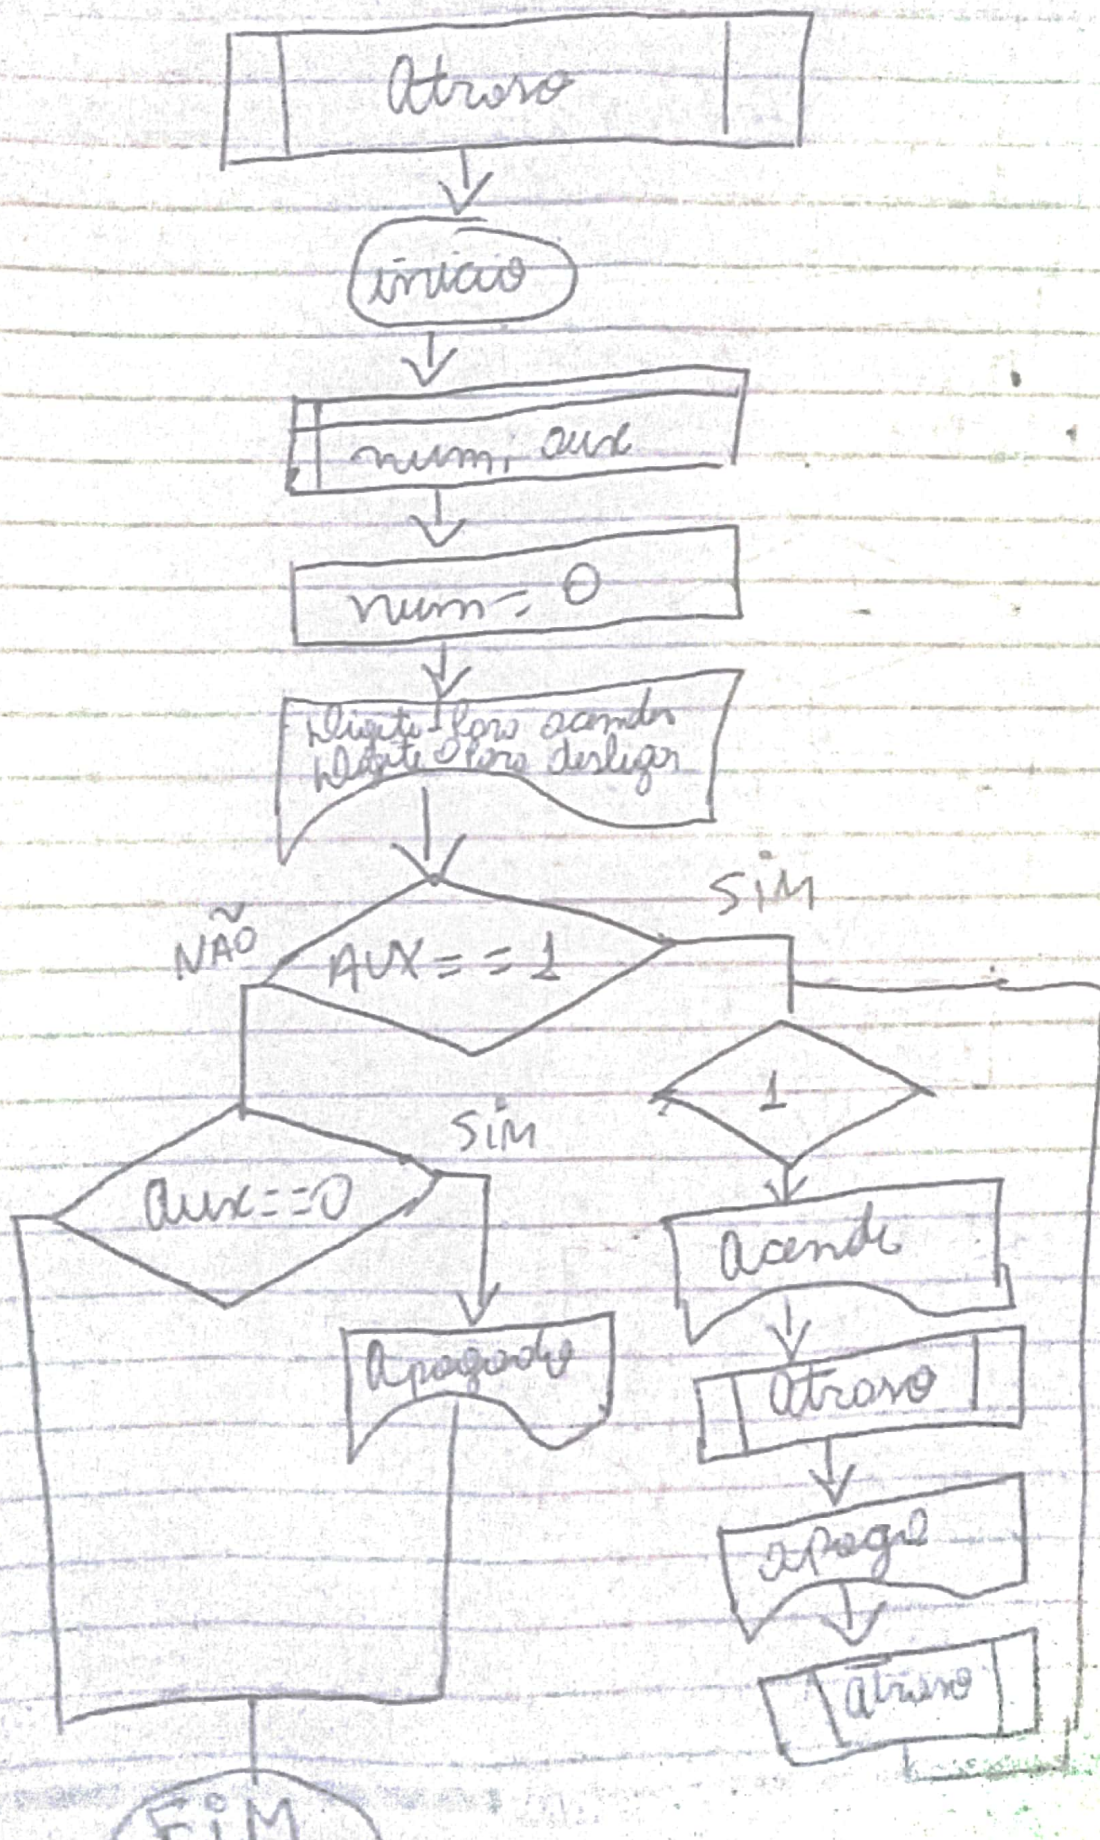 Atraso
inicio
num, aux
num = 0
Digite 1 para acender
Digite 0 para desligar
SiM
NÃO
AUX == 1
1
SiM
aux==0
acende
apagado
atraso
apaga
atraso
FiM